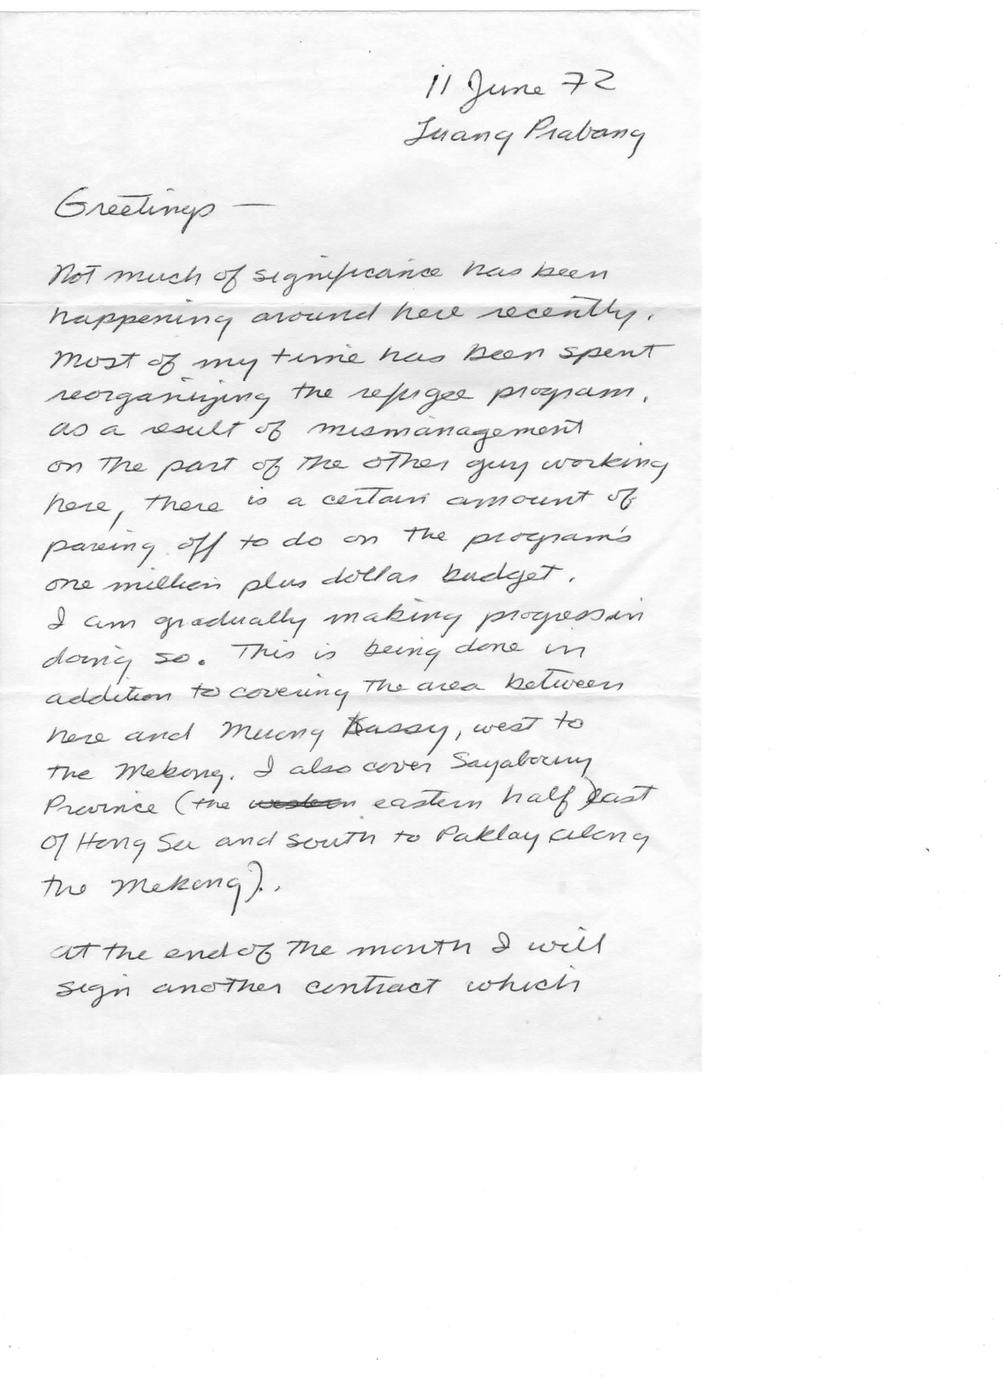 11 June 72
Luang Prabang
Greetings —
Not much of significance has been
happening around here recently.
Most of my time has been spent
reorganizing the refugee program.
As a result of mismanagement
on the part of the other guy working
here, there is a certain amount of
pareing off to do on the program's
one million plus dollar budget.
I am gradually making progress in
doing so. This is being done in
addition to covering the area between
here and Muong Kassy, west to
the Mekong. I also cover Sayaboury
Province (the western eastern half) east
of Hong Sa and south to Paklay along
the Mekong).
At the end of the month I will
sign another contract which